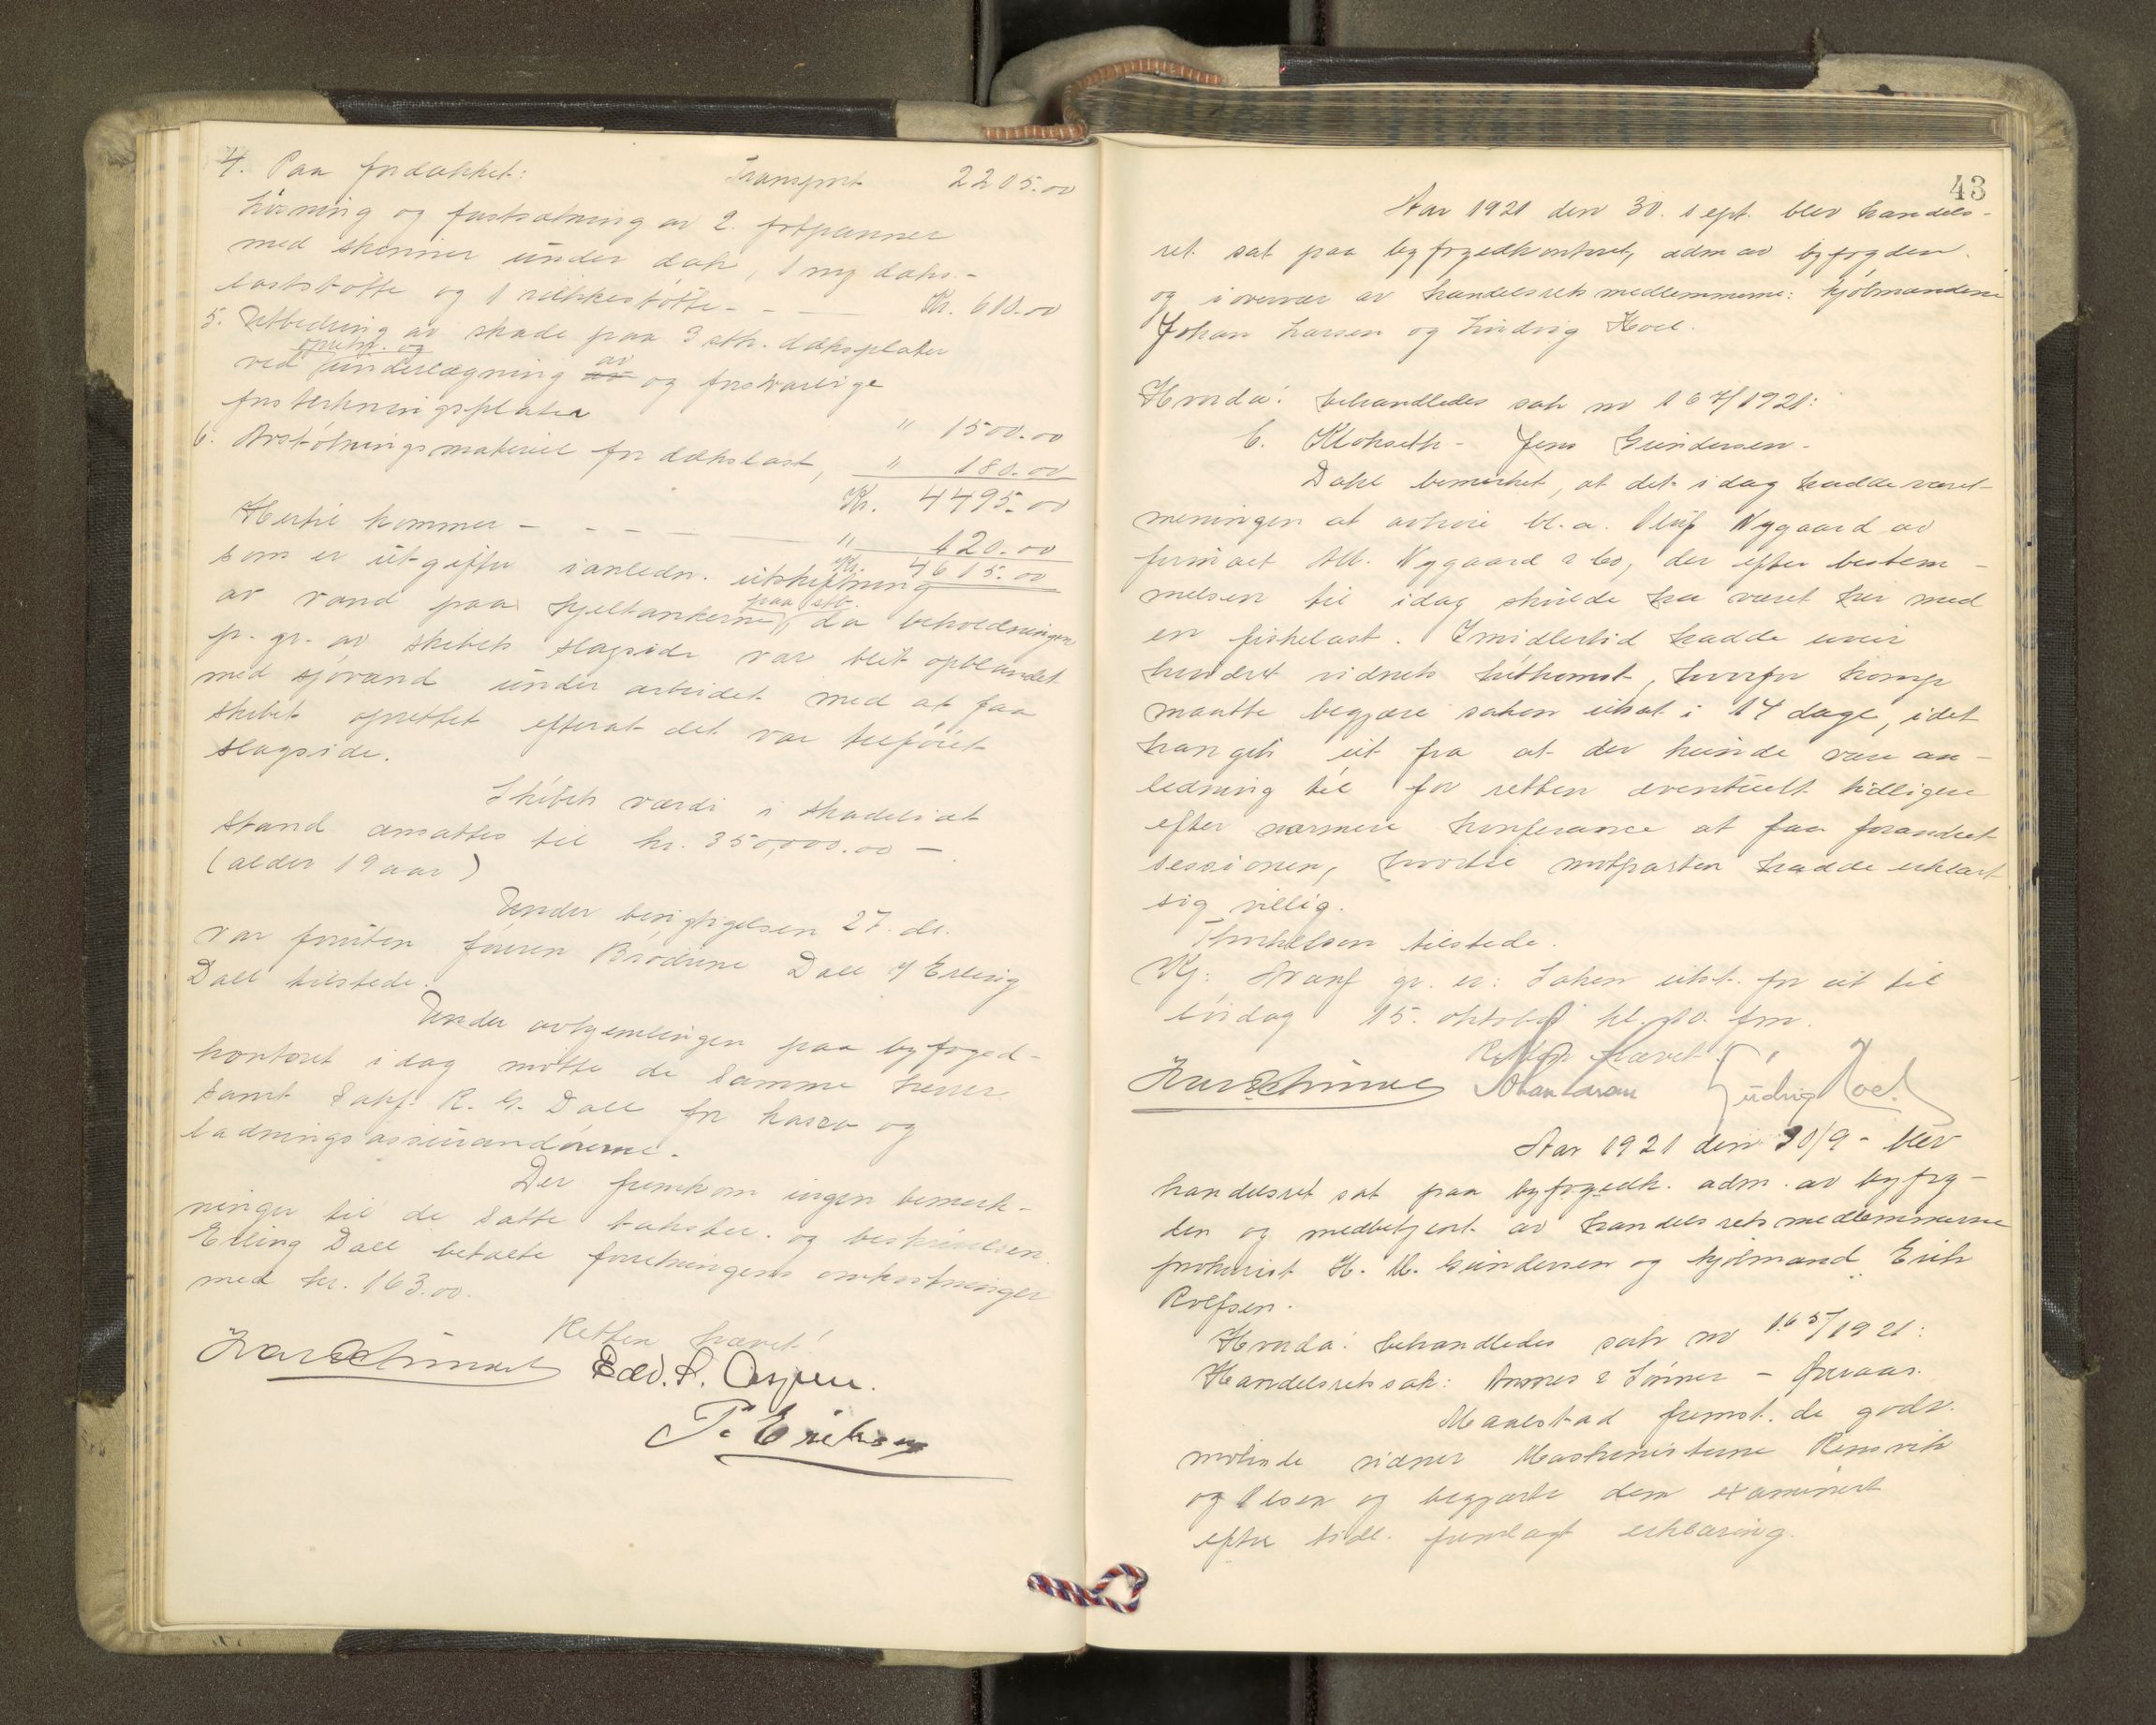 4. Paa fordækket: Transport 2205.00
Løsning og fastsætning av 2. fotpanner
med skinner under dæk, 1 ny dæks-
laststøtte og 1 rækkestøtte - - - Kr. 610.00
5. Utbedring av skade paa 3 stk. dæksplater
opretn. og
ved underlægning av og forsvarlige
forsterkningsplater " 1500.00
6. Avstøtningsmateriel for dækslast, " 180.00
Kr. 4495.00
Hertil kommer - - - - " 120.00
Kr. 4615.00
som er utgifter i anledn. utskiftning
av vand paa kjeltankerne paa stb. da beholdningen
p. gr. av skibets slagside var blit opblandet
med sjøvand under arbeidet med at faa
skibet oprettet efterat det var tilføiet
slagside.
Skibets værdi i skadelidt
stand ansattes til kr. 350,000.00 -.
(alder 19 aar)
Under besigtigelsen 27. ds.
var foruten føreren Brødrene Dall v/ Erling
Dall tilstede.
Under avhjemlingen paa byfoged-
kontoret idag møtte de samme herrer
samt Sakf. R. G. Dall for kasko og
ladningsassurandørerne.
Der fremkom ingen bemerk-
ninger til de satte takster og beskrivelsen.
Erling Dall betalte forretningens omkostninger
med kr. 163.00.
Retten hævet!
Edv. P. Aspen.
P. Eriksen
43
Aar 1921 den 30. sept. blev handels-
ret sat paa byfogedkontoret, adm av byfogden
og i overvær av handelsretsmedlemmerne: kjøbmændene
Johan Larsen og Ludvig Hoel.
Hvorda: behandledes sak no 167/1921:
C. Klokseth - Jens Gundersen -
Dahl bemerket, at det idag hadde været
meningen at avhøre bl.a. Oluf Nygaard av
firmaet Alb. Nygaard & Co, der efter bestem-
melsen til idag skulde ha været her med
en fiskelast. Imidlertid hadde uveir
hindret vidnets hitkomst, hvorfor komp
maatte begjære saken utsat i 14 dage, idet
han gik ut fra at der kunde være an-
ledning til for retten eventuelt tidligere
efter nærmere konferance at faa forandret
sessionen, hvortil motparten hadde erklært
sig villig.
Thorkelsen tilstede.
Kj: Avanf gr. er: Saken utst. for ut til
lørdag 15. oktober kl. 10. fm.
Retten hævet!
Johan Larsen Ludvig Hoel
Aar 1921 den 30/9 - blev
handelsret sat paa byfogedk. adm. av byfog-
den og medbetjent av handelsretsmedlemmerne
prokurist H. M. Gundersen og kjøbmand Erik
Rolfsen.
Hvorda: behandledes sak no 165/1921:
Handelsretssak: Amnes & Sønner -
Maalestad fremst. de godv.
møtende vidner Maskinisterne Remvik
og Olsen og begjærte dem examinert
efter tidl. fremlagt erklæring.